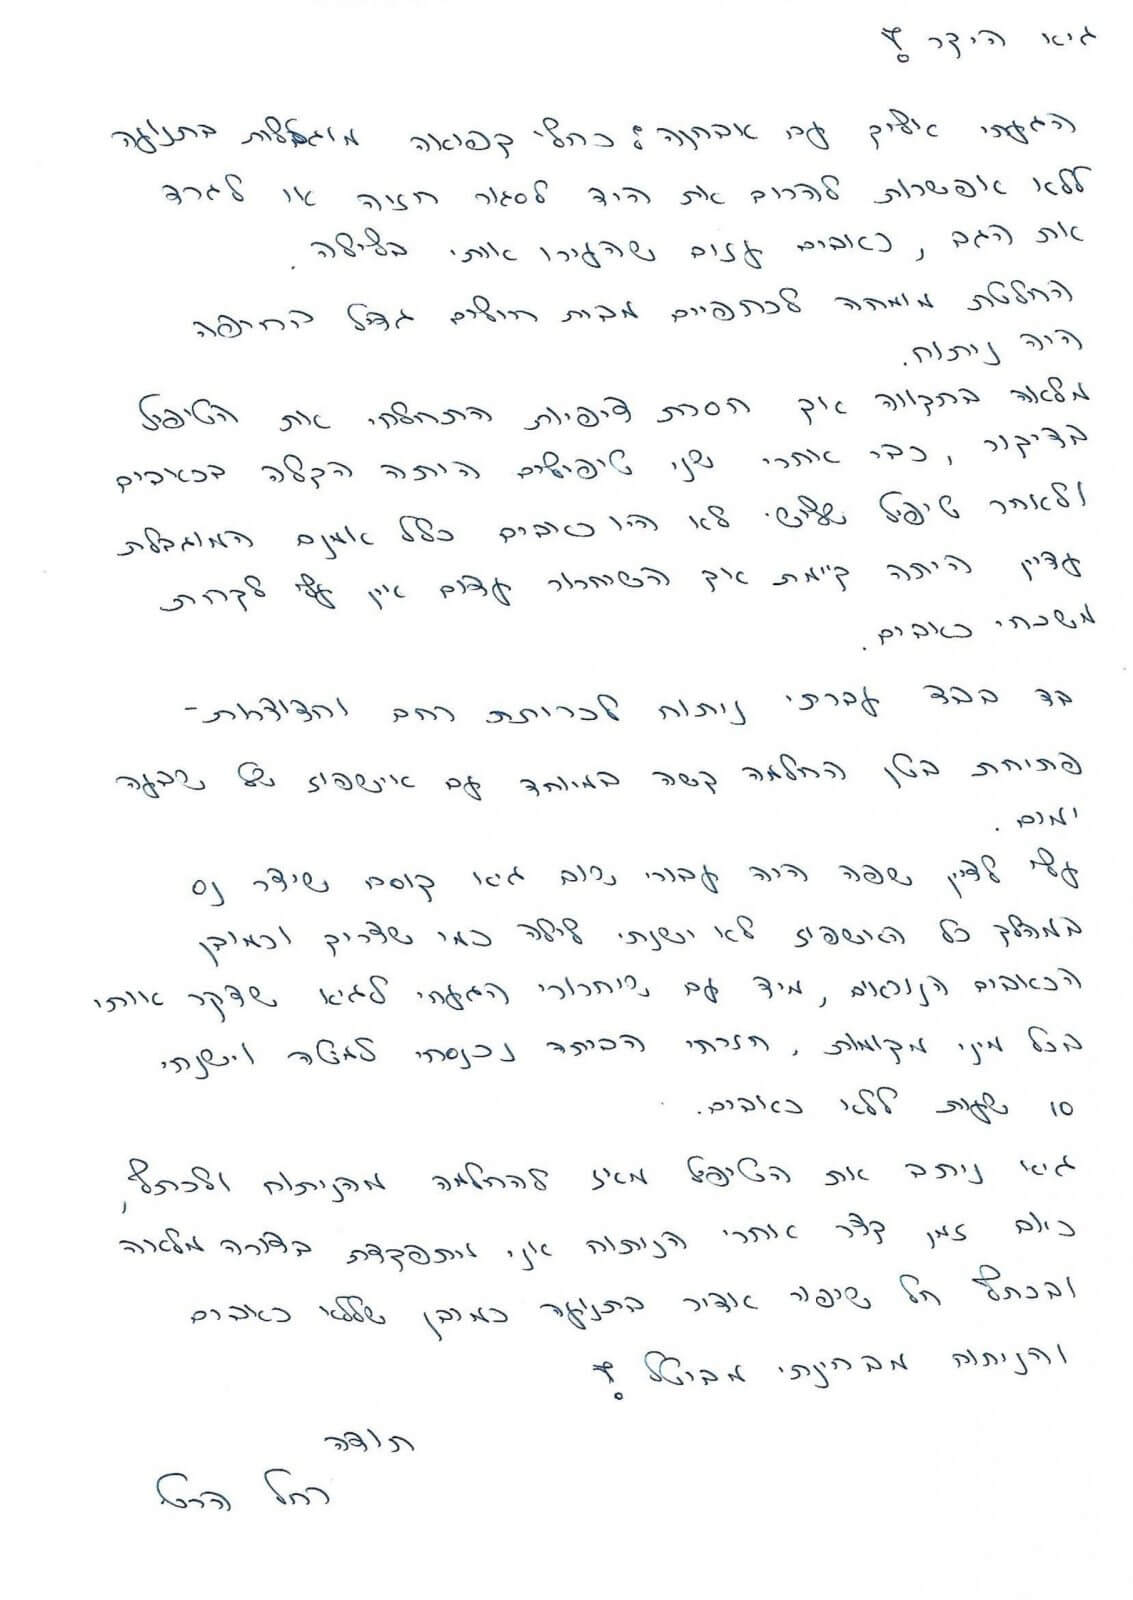 גיא היקר!
הגעתי אליך עם אבחנה: כתף קפואה מוגבלות בתנועה
ללא אפשרות להרים את היד לסגור חזיה או לגרד
את הגב, כאבים עזים שהעירו אותי בלילה.
החלטת מומחה לכתפיים מבית חולים גדול בחיפה
היה ניתוח.
מלאה בתקווה אך חסרת ציפיות התחלתי את הטיפול
בדיקור, כבר אחרי שני טיפולים היתה הקלה בכאבים
ולאחר טיפול שלישי לא היו כאבים כלל אומנם המוגבלות
עדין היתה קיימת אך השיחרור עצום אין עלי לקחת
משככי כאבים.
בד בבד עברתי ניתוח לכריתת רחם והצדודות-
פתיחת בטן החלמה קשה במיוחד עם אישפוז של שבעה
ימים.
עלי לציין שפה היה עבורי גיא קוסם שיצר נס
במהלך כל האישפוז לא ישנתי לילה כמו שצריך וכמובן
הכאבים הנוראים, מיד עם שיחרורי הגעתי לגיא שדקר אותי
בכל מיני מקומות, חזרתי הביתה נכנסתי למיטה וישנתי
10 שעות ללא כאבים.
גיא ניתב את הטיפול מאז להחלמה מהניתוח ולכתף,
כיום זמן קצר אחרי הניתוח אני מתפקדת בצורה מלאה
ובכתף חל שיפור אדיר בתנועה כמובן שללא כאבים
והניתוח מבחינתי מבוטל!
תודה
רחל